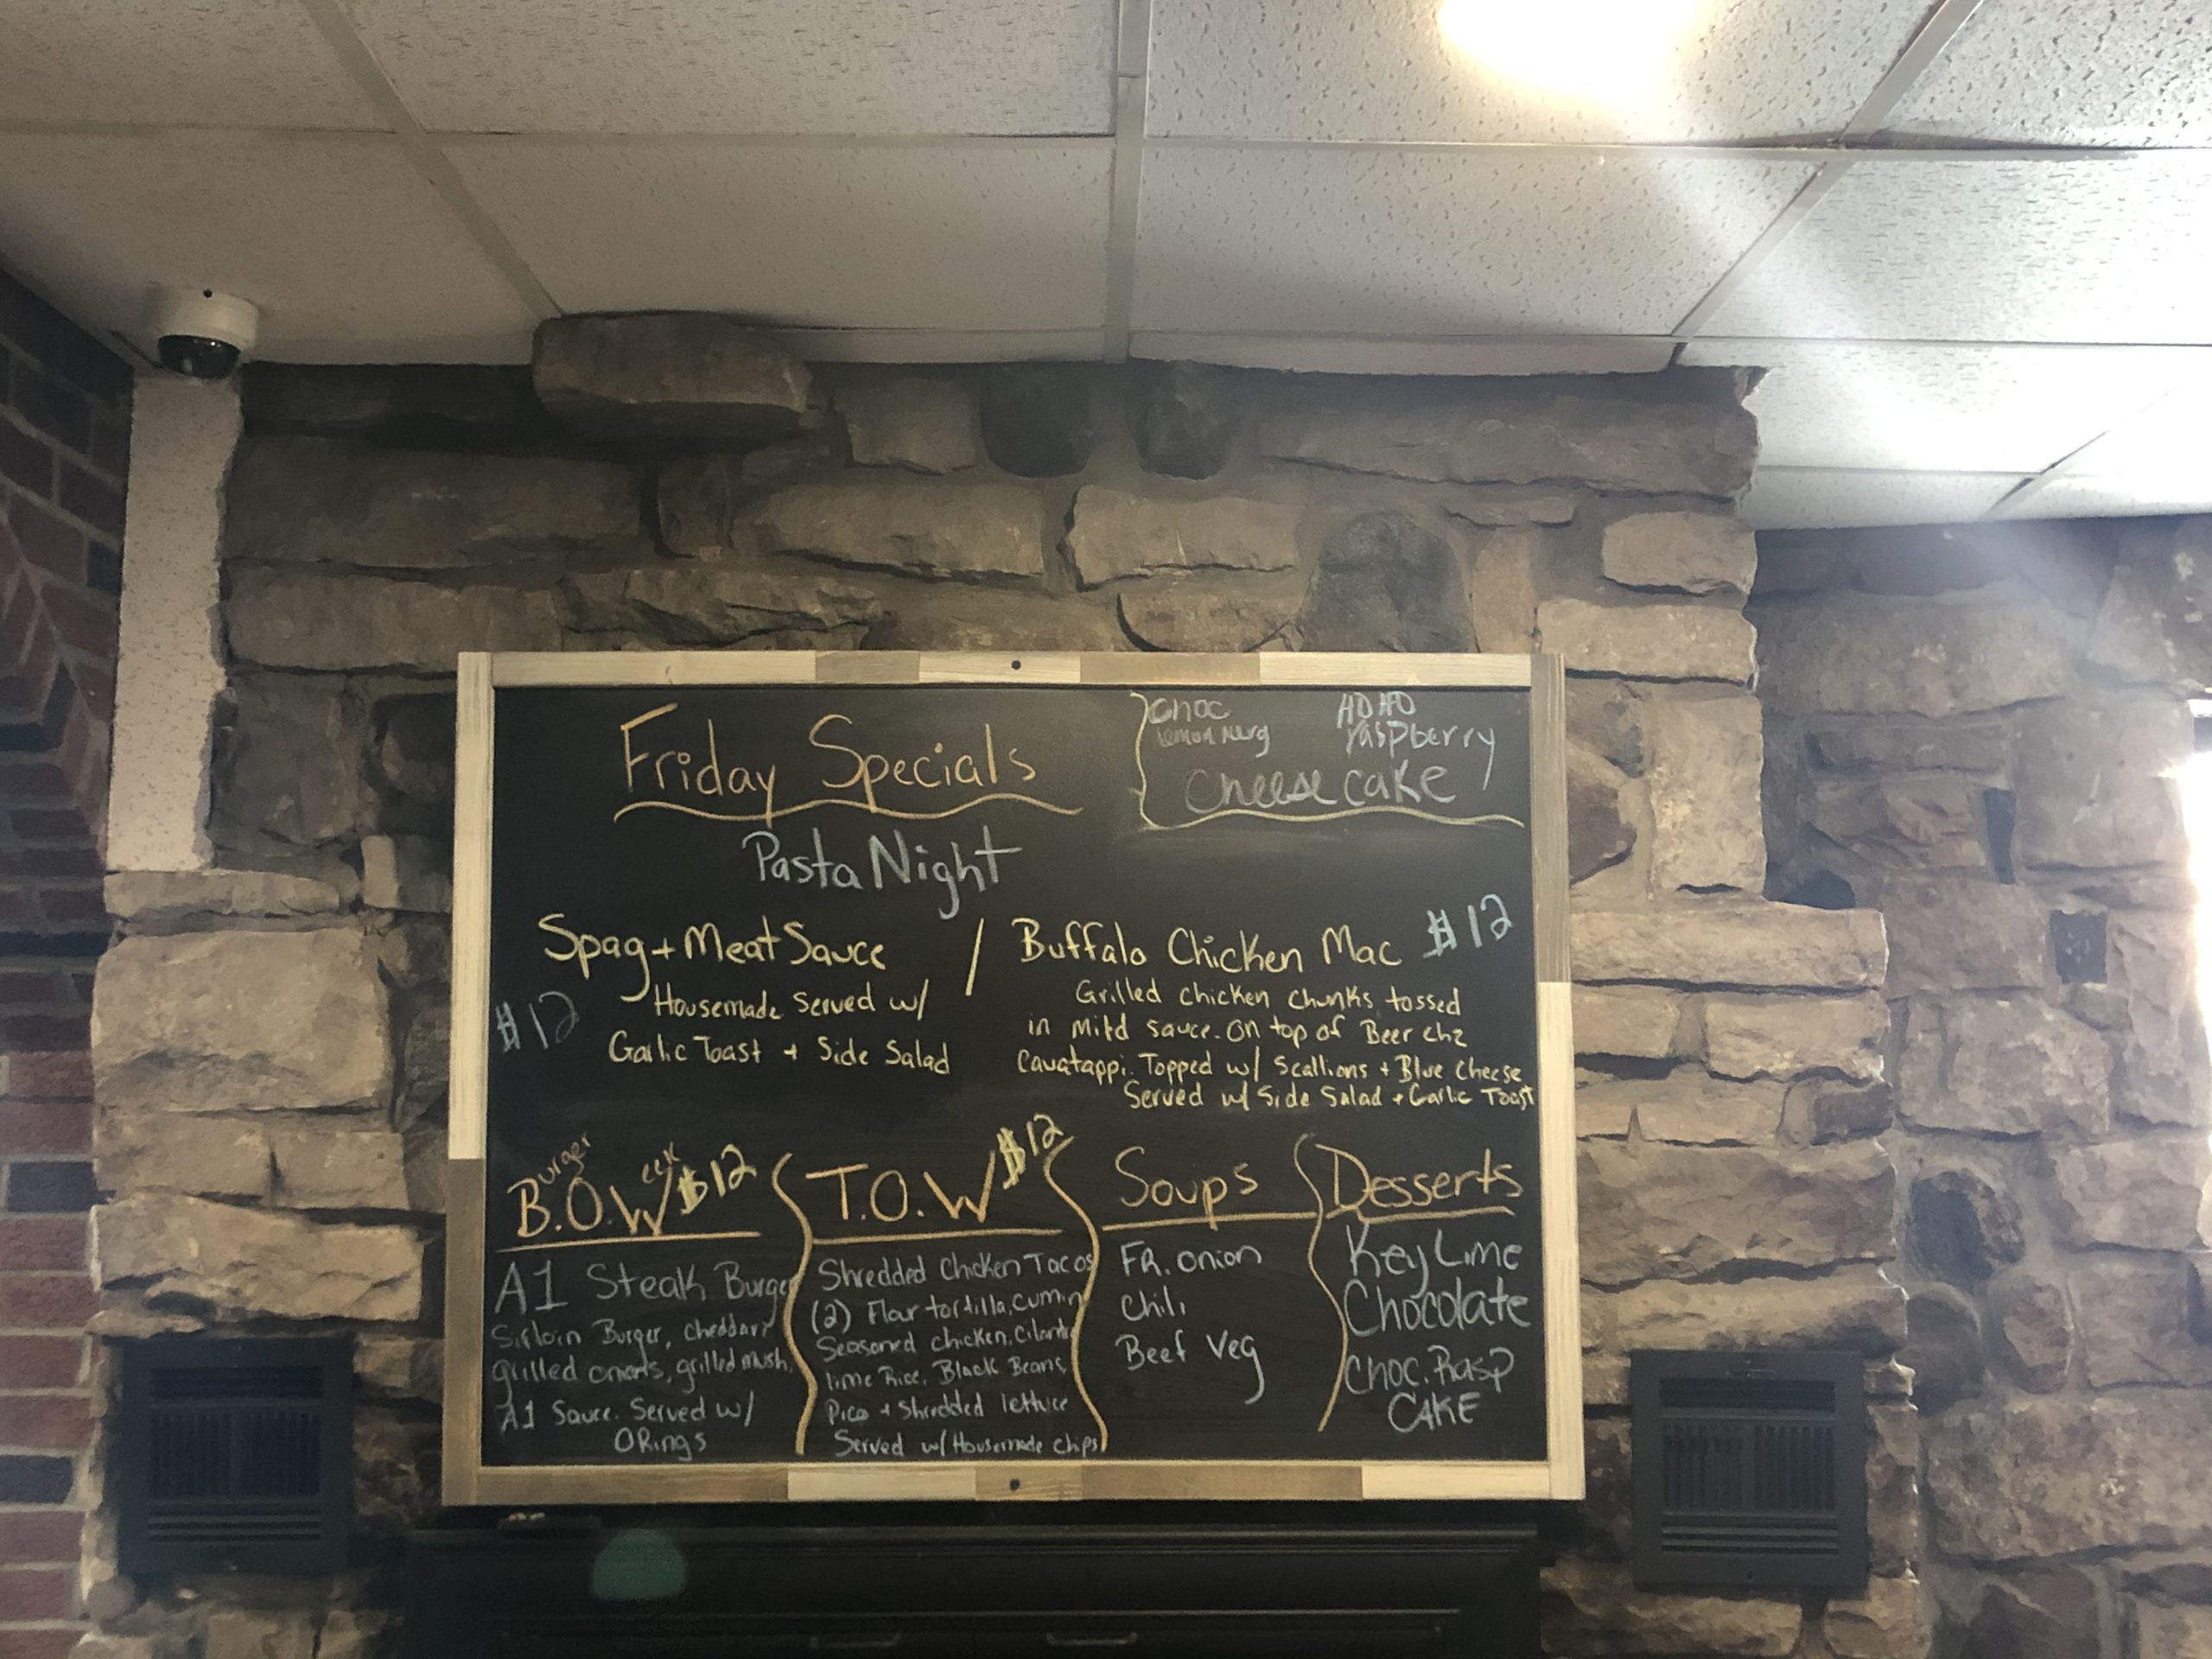 Friday Specials
Choc
HOHO
lemon
raspberry
Cheesecake
Pasta Night
Spag + Meat Sauce
$12
Housemade Served w/
Garlic Toast + Side Salad
/
Buffalo Chicken Mac $12
Grilled chicken chunks tossed
in Mild sauce. On top of Beer chz
Cavatappi. Topped w/ Scallions + Blue Cheese
Served w/ Side Salad + Garlic Toast
Burger
eek
B.O.W $12
A1 Steak Burger
Sirloin Burger, cheddar,
grilled onions, grilled mush,
A1 Sauce. Served w/
O Rings
T.O.W $12
Shredded Chicken Tacos
(2) Flour tortilla, cumin
Seasoned chicken, Cilantro
lime Rice, Black Beans,
Pico + Shredded lettuce
Served w/ Housemade chips
Soups
FR. onion
Chili
Beef Veg
Desserts
Key Lime
Chocolate
Choc. Rasp
CAKE